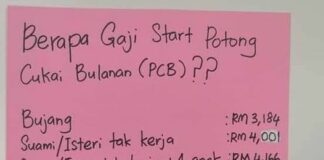 Berapa Gaji Start Potong
Cukai Bulanan (PCB)??
Bujang :RM 3,184
Suami/Isteri tak kerja :RM 4,001